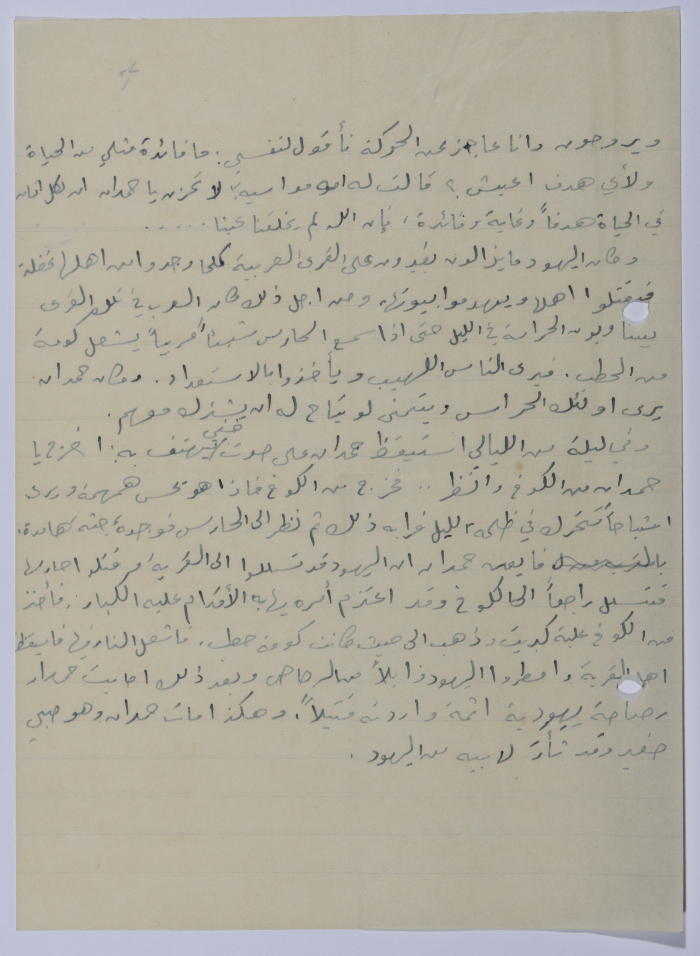 ويروحون وانا عاجز عن الحركة فأقول لنفسي: ما فائدة مثلي من الحياة
ولأي هدف اعيش؟ قالت له امه مواسية: لا تحزن يا حمدان ان لكل انسان
في الحياة هدفاً وغاية وفائدة، فإن الله لم يخلقنا عبثا.....
وكان اليهود ما يزالون يغيرون على القرى العربية كلما وجدوا من اهلها غفلة
فيقتلوا اهلها ويهدموا بيوتها، ومن اجل ذلك كان العرب في تلك القرى
يتناوبون الحراسة في الليل حتى اذا سمع الحارس شيئاً مريباً يشعل كومة
من الحطب. فيرى الناس اللهيب ويأخذوا بالاستعداد. وكان حمدان
يرى اولئك الحراس ويتمنى لو يتاح له ان يشترك معهم.
وفي ليلة من الليالي استيقظ حمدان على صوت خفي يهتف به: اخرج يا
حمدان من الكوخ وانظر.. فخرج من الكوخ فاذا هو يحس همهمة ويرى
اشباحاً تتحرك في ظلمة الليل فرابه ذلك ثم نظر الى الحارس فوجده جثة هامدة.
فايقن حمدان ان اليهود قد تسللوا الى القرية وقتلوا حارسها
فتسلل راجعاً الى الكوخ وقد اعتزم أمره يهابه الأقدام عليه الكبار. فأخذ
من الكوخ علبة كبريت وذهب الى حيث كانت كومة حطب. فاشعل النار فيها فاستيقظ
اهل القرية وامطروا اليهود وابلاً من الرصاص وبعد ذلك اصابت حمدان
رصاصة يهودية اثمة واردته قتيلاً. وهكذا مات حمدان وهو صبي
صغير وقد ثأر لابيه من اليهود.